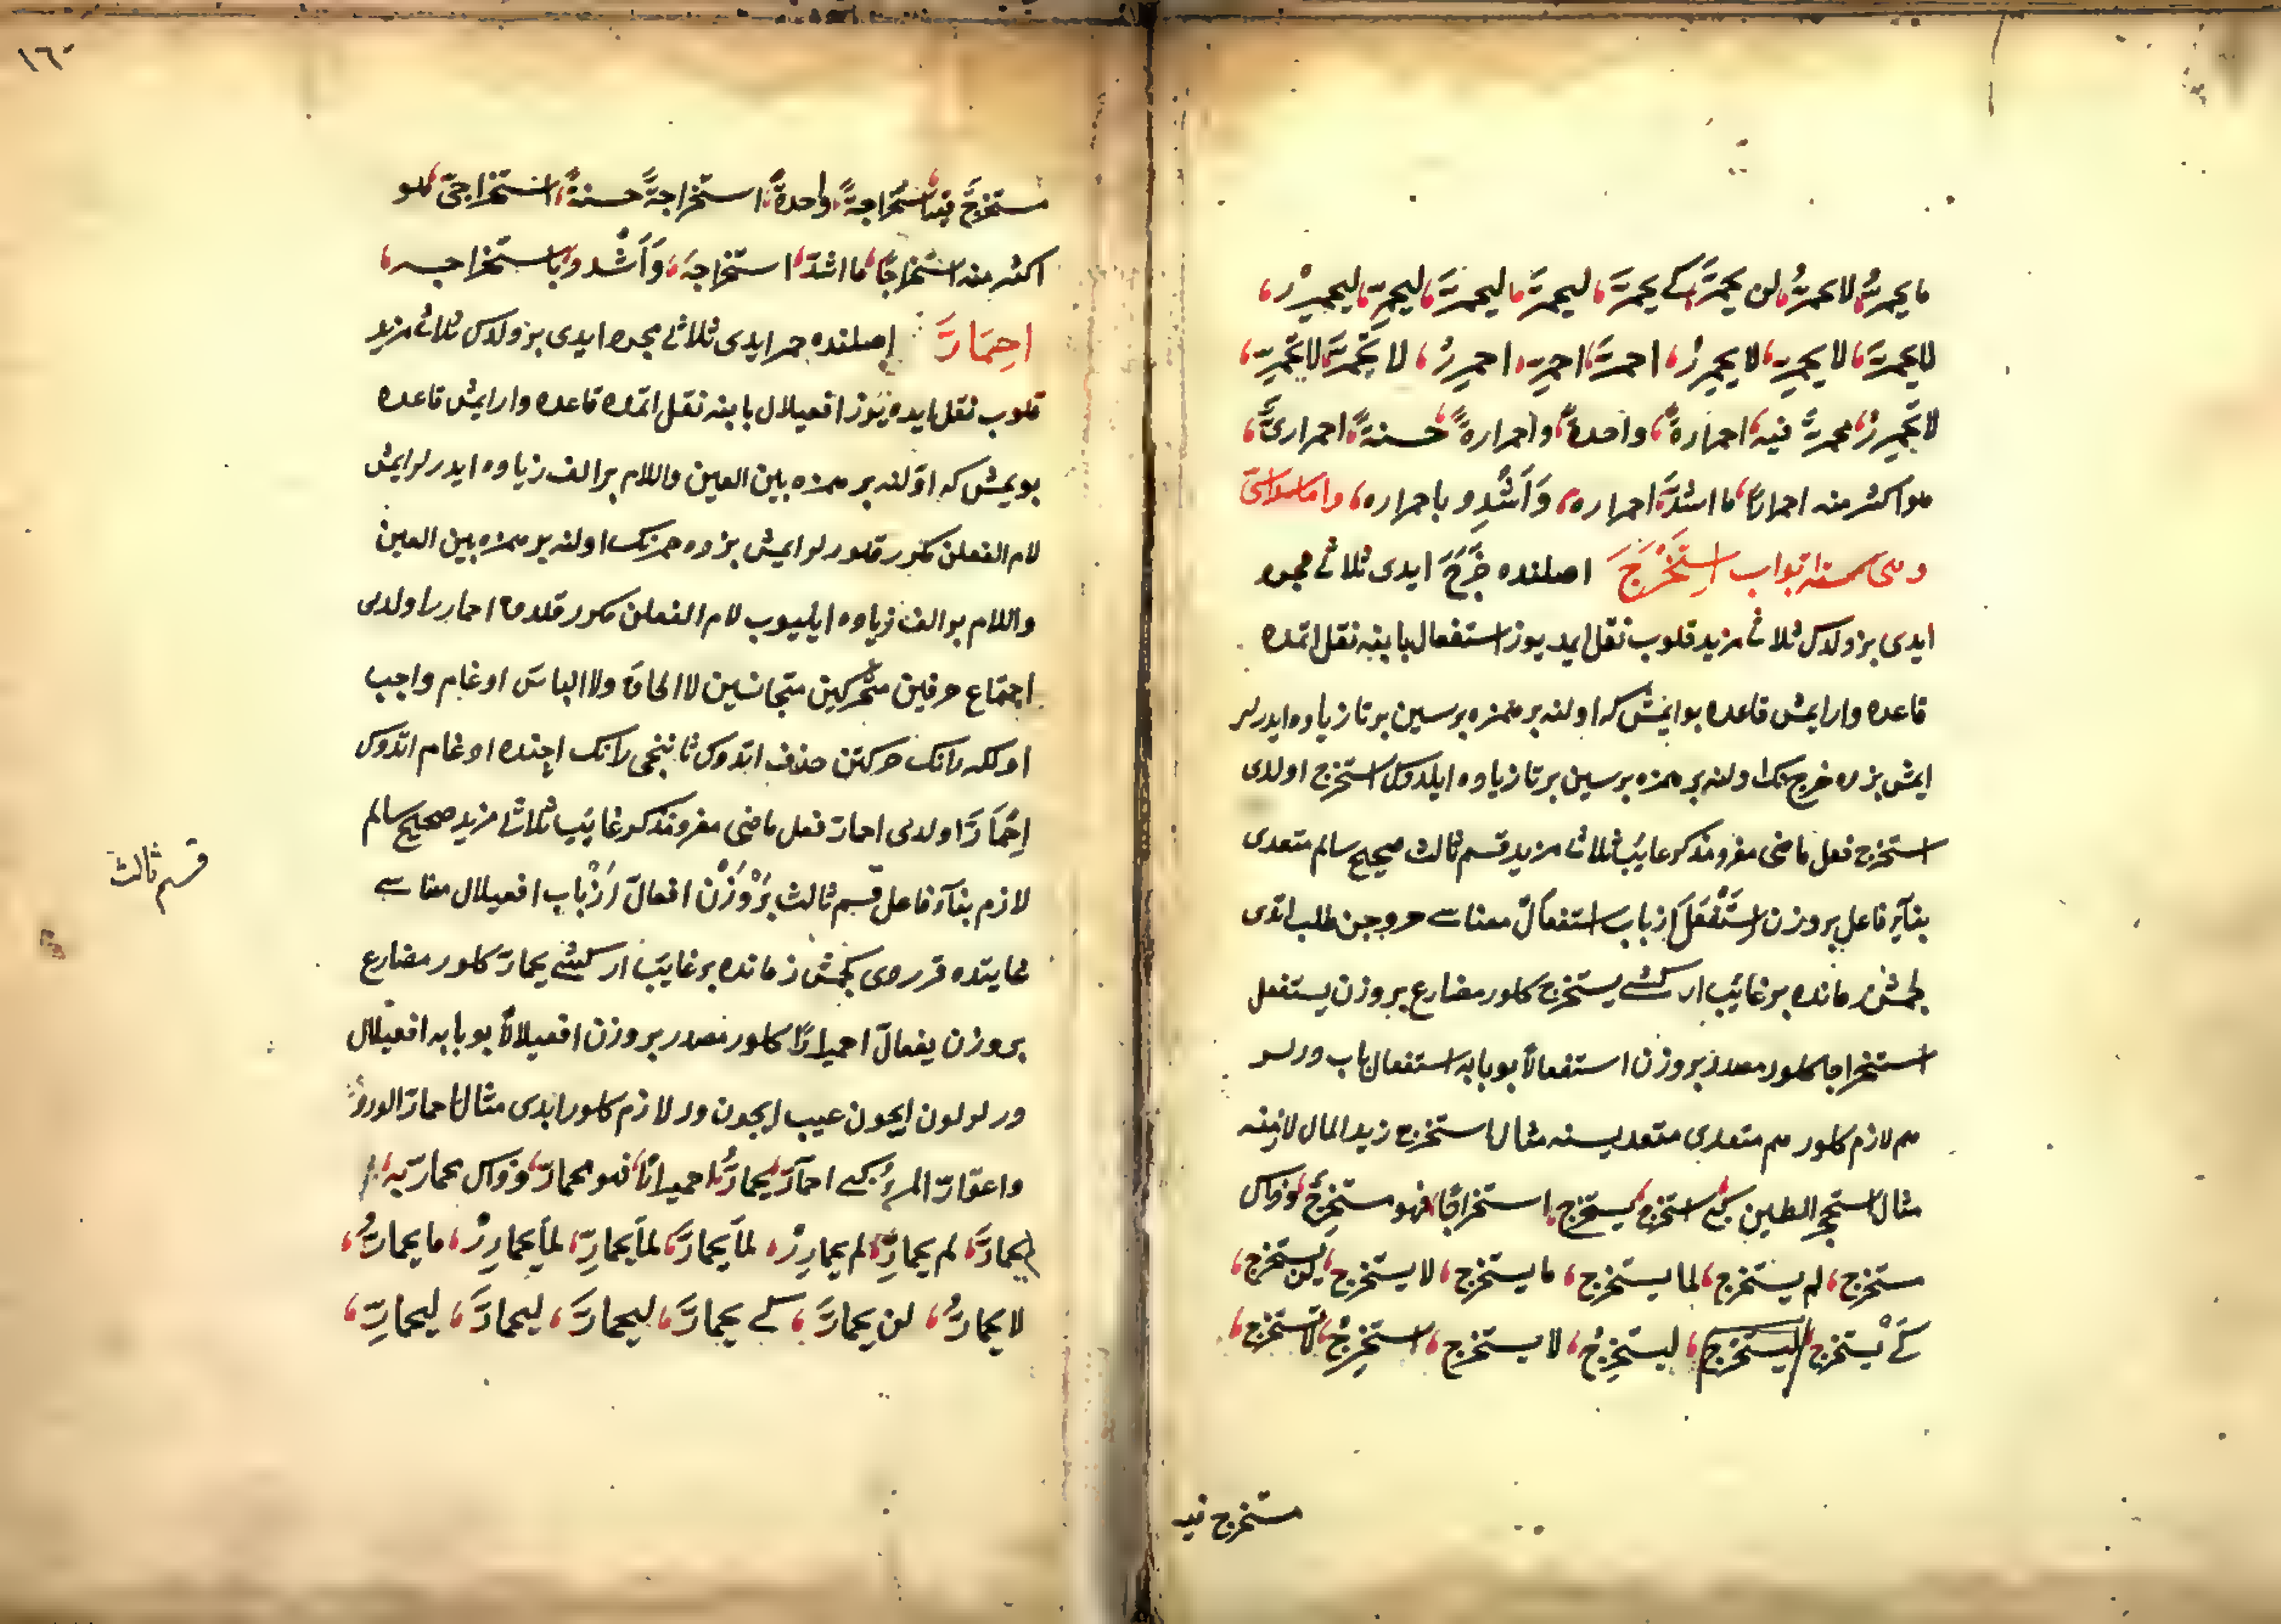 ما يحمرُّ، لا يحمرُّ، لن يحمرَّ، كے يحمرَّ، ليحمرَّ، ليحمرَّ، ليحمرِّ، ليحمررْ،
لا يحمرَّ، لا يحمرِّ، لا يحمررْ، احمرَّ، احمرِّ، احمررْ، لا تحمرَّ، لا تحمرِّ،
لا تحمررْ، محمرٌّ فيه، احمرارةً، واحدةً، واحمرارةً، حسنةً، احمراريٌّ،
هو اكثر منه احمرارًا، ما اشدَّ احمراره، وَاَشْدِد باحمراره، واما سداسى
اتواب اِسْتَخْرَجَ اصلنده خَرَجَ ايدى ثلاثے مجرد
ايدى بز ولاكن ثلاثے مزيد قلوب نقل ايديوز استفعال بابنه نقل اتمده
قاعده وارايمش قاعده بوايمش كه اولنه بر همزه بر سين بر تا زياده ايدرلر
ايمش بزده خرج نك اولنه بر همزه بر سين بر تا زياده ايلدوك استخرج اولدى
استخرج فعل ماضى مفرد مذكر غايب ثلاثے مزيد قسم ثالث صحيح سالم متعدى
بنآء فاعل بروزن اِسْتَفْعَلَ از باب استفعال معناسے خروجن طلب اتدى
كچمش زمانده بر غايب ار كشے يستخرج كلور مضارع بروزن يستفعل
استخراجا كلور مصدر بروزن استفعالاً بو بابه استفعال باب ديرلر
هم لازم كلور هم متعدى متعديسنه مثال استخرج زيد المال لازمنه
مثال استحجر الطين كبے استخرج يستخرج استخراجًا فهو مستخرِجٌ وذاك
مستخرج، لم يستخرج، لما يستخرج، ما يستخرج، لا يستخرج، لن يستخرج،
كے يستخرج، ليستخرج، ليستخرج، لا يستخرج، استخرجْ، لا تستخرج،
مستخرج فيه
١٦٠
مستخرجٌ فيه، استخراجةً، واحدةً، استخراجةً حسنةً، استخراجيٌّ، هو
اكثر منه استخراجًا، ما اشدَّ استخراجه، وَاَشْدِد باستخراجه،
اِحمَارَّ اصلنده حمر ايدى ثلاثے مجرد ايدى بز ولاكن ثلاثے مزيد
قلوب نقل ايديوز افعيلال بابنه نقل اتمده قاعده وارايمش قاعده
بويمش كه اوّلنه بر همزه بين العين واللام بر الف زياده ايدرلرايمش
لام الفعلن مكرر قلورلرايمش بزده حمرنك اولنه بر همزه بين العين
واللام بر الف زياده ايليوب لام الفعلن مكرر قلدق احمارر اولدى
اجتماع حرفين متحركين متجانسين لا الحاق ولا الباس ادغام واجب
اولكه رانك حركتن حذف اتدوك ثانيجى رانك ايچنده ادغام اتدوك
اِحْمَارَّ اولدى احمارّ فعل ماضى مفرد مذكر غايب ثلاثے مزيد صحيح سالم
لازم بنآء فاعل قسم ثالث بَرْوَزْن افعالّ اَزْبَاب افعيلال معناسے
غايتده قزردى كچمش زمانده بر غايب ار كشے يحمارّ كلور مضارع
بروزن يفعالّ احميرارًا كلور مصدر بروزن افعيلالاً بو بابه افعيلال
ديرلر لون ايچون عيب ايچون ديرلر لازم كلور ابدى مثال احمارّ الوردُ
واعوارّ المرءُ كبے احمآرّ، يحمارُّ، احميرارًا، فهو محمارّ، وذاك محمارّ به،
لم يحمارَّ، لم يحمارِّ، لم يحماررْ، لمّا يحمارَّ، لمّا يحمارِّ، لمّا يحماررْ، ما يحمارُّ،
لا يحمارُّ، لن يحمارَّ، كے يحمارَّ، ليحمارَّ، ليحمارَّ، ليحمارِّ،
قسم ثالث